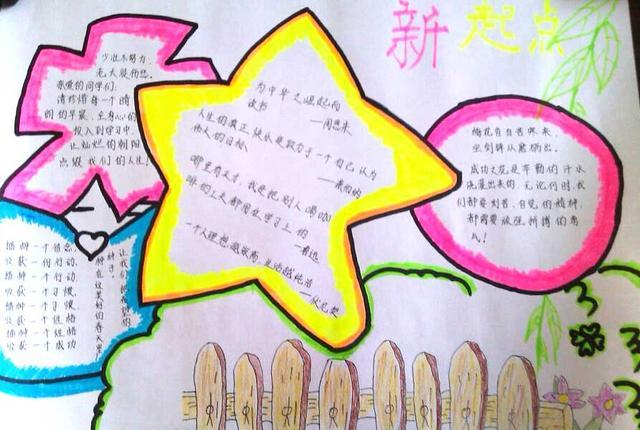 新起点
少壮不努力，
老大徒伤悲。
亲爱的同学们：
请珍惜每一个晴
朗的早晨，全身心的
投入到学习中，
让灿烂的朝阳
点缀我们的人生！
为中华之崛起而
读书
——周恩来
人生的真正快乐是致力于一个自己认为
伟人的目标。
——萧伯纳
哪里有天才，我是把别人喝咖
啡的工夫都用在学习上的
——鲁迅
一个人理想越崇高，生活越纯洁
——伏尼契
梅花香自苦寒来，
宝剑锋从磨砺出。
成功之花是辛勤的汗水
浇灌出来的，无论何时，我
们都要刻苦、自觉的精神，
都需要顽强拼搏的勇
气！
播种一个信念，
收获一份行动，
播种一个行动，
收获一个习惯，
播种一个习惯，
收获一个性格
播种一个性格
收获一个成功